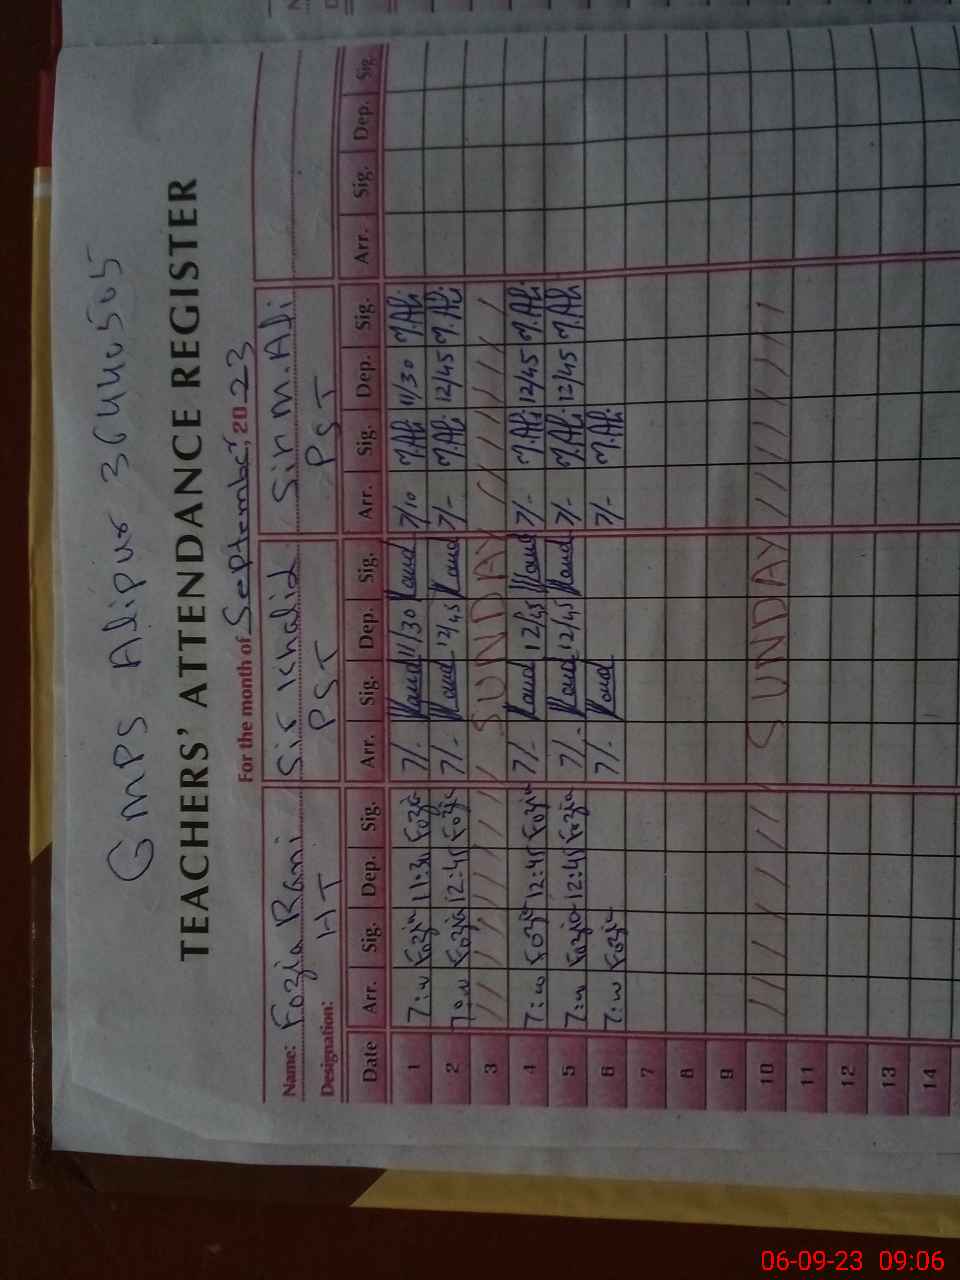 GMPS Alipur 36440505
TEACHERS' ATTENDANCE REGISTER
For the month of September, 2023
Name: Fozia Rani Sir Khalid Sir M.Ali
Designation: HT PST PST
Date Arr. Sig. Dep. Sig. Arr. Sig. Dep. Sig. Arr. Sig. Dep. Sig. Arr. Sig. Dep. Sig.
1 7:00 Fozia 11:30 Fozia 7/- 11/30 7/10 M.Ali 11/30 M.Ali
2 7:00 Fozia 12:45 Fozia 7/- 12/45 7/- M.Ali 12/45 M.Ali
3 SUNDAY
4 7:00 Fozia 12:45 Fozia 7/- 12/45 7/- M.Ali 12/45 M.Ali
5 7:00 Fozia 12:45 Fozia 7/- 12/45 7/- M.Ali 12/45 M.Ali
6 7:00 Fozia 7/- 7/- M.Ali
7
8
9
10 SUNDAY
11
12
13
14
06-09-23 09:06